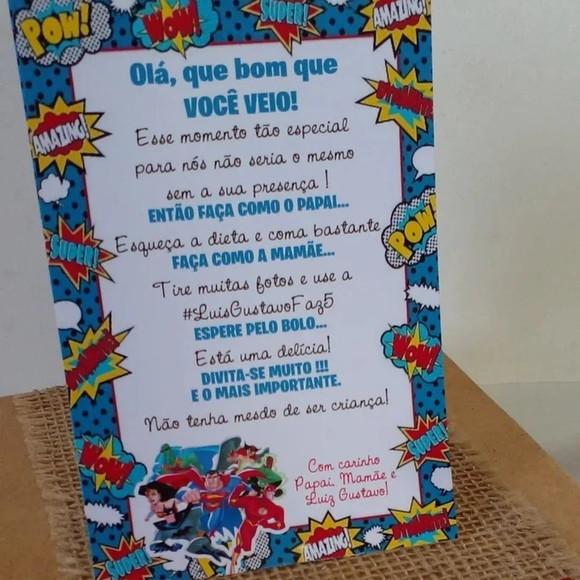 POW!
WOW!
SUPER!
AMAZING!
Olá, que bom que
VOCÊ VEIO!
Esse momento tão especial
para nós não seria o mesmo
sem a sua presença !
ENTÃO FAÇA COMO O PAPAI...
Esqueça a dieta e coma bastante
FAÇA COMO A MAMÃE...
Tire muitas fotos e use a
#LuisGustavoFaz5
ESPERE PELO BOLO...
Está uma delícia!
DIVITA-SE MUITO !!!
E O MAIS IMPORTANTE.
Não tenha mesdo de ser criança!
Com carinho
Papai, Mamãe e
Luiz Gustavo!
AMAZING!
SUPER!
WOW!
SUPER!
POW!
WOW!
SUPER!
AMAZING!